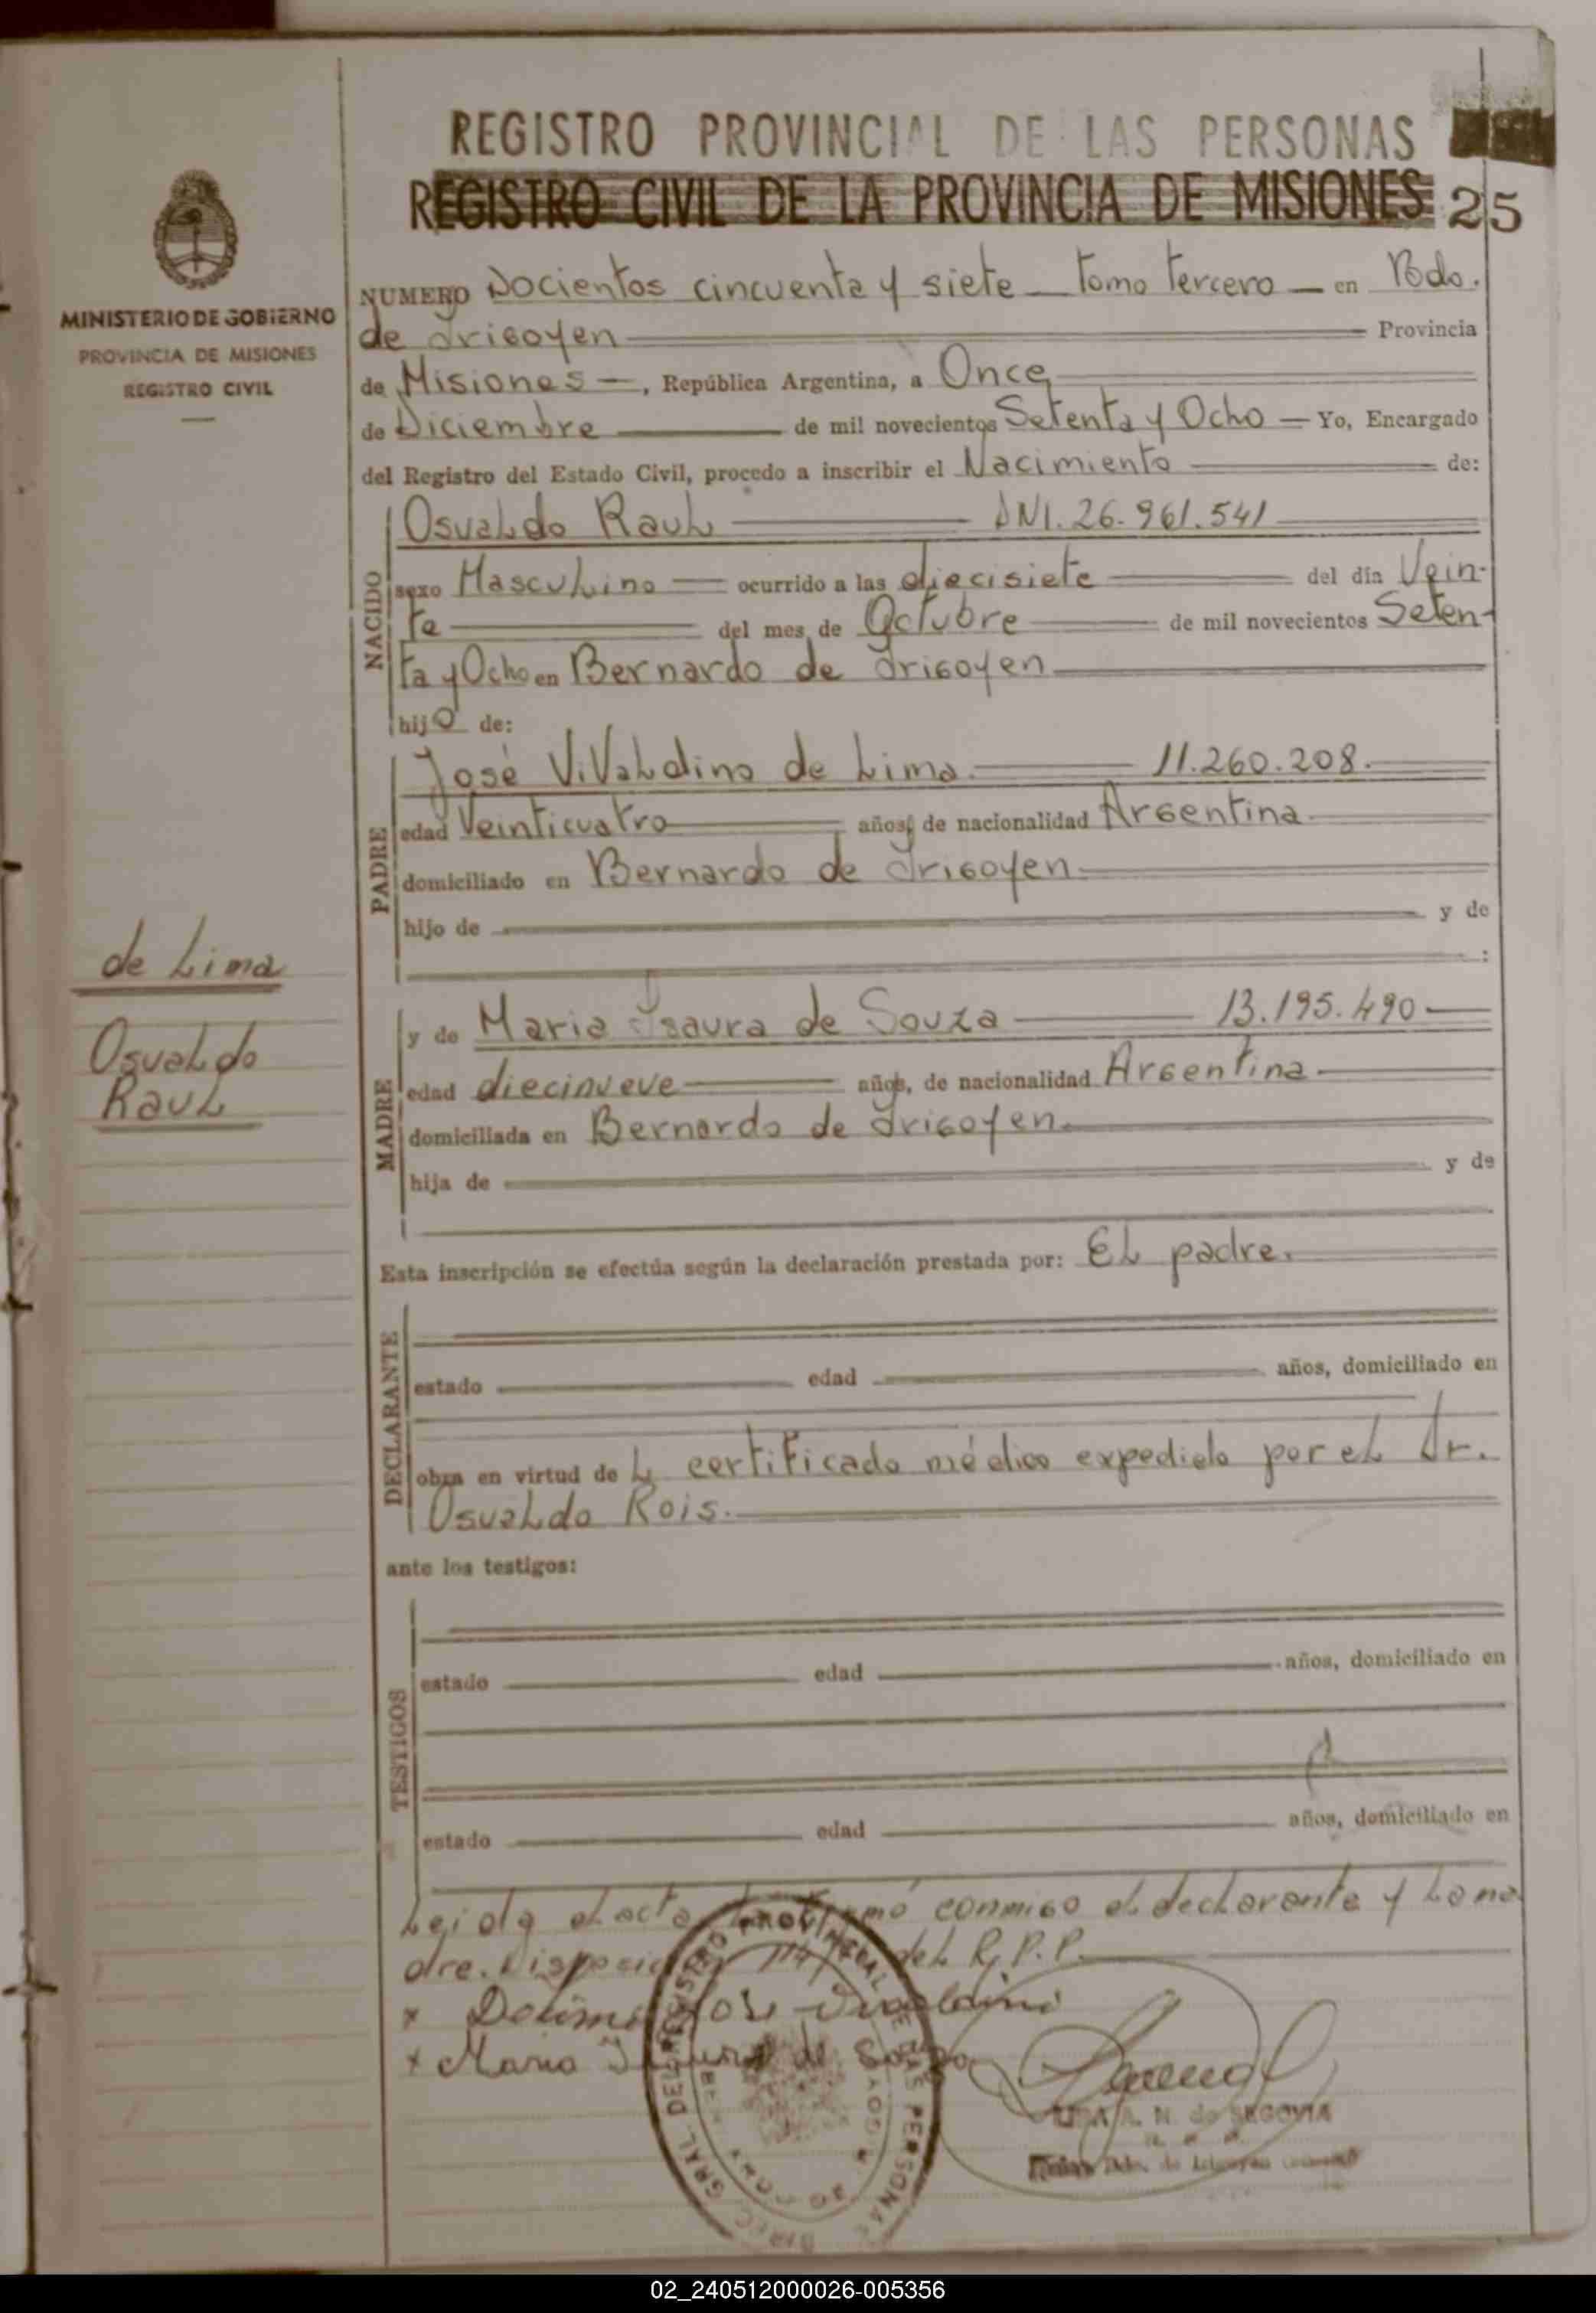 REGISTRO PROVINCIAL DE LAS PERSONAS
REGISTRO CIVIL DE LA PROVINCIA DE MISIONES 25
MINISTERIO DE GOBIERNO
PROVINCIA DE MISIONES
REGISTRO CIVIL
NUMERO Docientos cincuenta y siete — tomo tercero — en Bdo.
de Irigoyen Provincia
de Misiones —, República Argentina, a Once
de Diciembre de mil novecientos Setenta y Ocho — Yo, Encargado
del Registro del Estado Civil, procedo a inscribir el Nacimiento de:
NACIDO
Osvaldo Raul DNI. 26.961.541
sexo Masculino — ocurrido a las diecisiete del día Vein-
te del mes de Octubre de mil novecientos Seten-
ta y Ocho en Bernardo de Irigoyen
hijo de:
PADRE
José Vivaldino de Lima. 11.260.208.
edad Veinticuatro años, de nacionalidad Argentina
domiciliado en Bernardo de Irigoyen.
hijo de y de
:
de Lima
Osvaldo
Raul
MADRE
y de Maria Isaura de Souza 13.195.490
edad diecinueve años, de nacionalidad Argentina
domiciliada en Bernardo de Irigoyen.
hija de y de
Esta inscripción se efectúa según la declaración prestada por: El padre.
DECLARANTE
estado edad años, domiciliado en
obra en virtud de l certificado médico expedido por el Dr.
Osvaldo Rois.
ante los testigos:
TESTIGOS
estado edad años, domiciliado en
estado edad años, domiciliado en
Leida el acta conmigo el declarante y la ma
dre. del R.P.P.
x Delima Jose
x Maria de
A. N. de SEGOVIA
DIREC. GRAL. DEL REGISTRO PROVINCIAL DE LAS PERSONAS
02_240512000026-005356